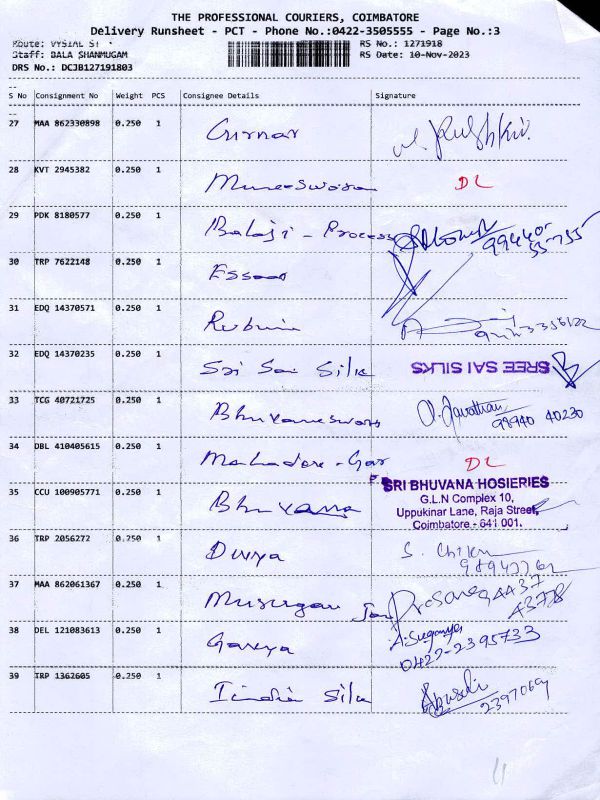 THE PROFESSIONAL COURIERS, COIMBATORE
Delivery Runsheet - PCT - Phone No.:0422-3505555 - Page No.:3
Route: VYSIAL ST
Staff: BALA SHANMUGAM
DRS No.: DCJB127191803
RS No.: 1271918
RS Date: 10-Nov-2023
S No Consignment No Weight PCS Consignee Details Signature
27 MAA 862330898 0.250 1 Girnar
28 KVT 2945382 0.250 1 Muneeswara DL
29 PDK 8180577 0.250 1 Balaji - Process 99440-55755
30 TRP 7622148 0.250 1 Essaa
31 EDQ 14370571 0.250 1 Rubini
32 EDQ 14370235 0.250 1 Sri Sai Silk SREE SAI SILKS
33 TCG 40721725 0.250 1 Bhuvaneswari 98940 40230
34 DBL 410405615 0.250 1 DL
35 CCU 100905771 0.250 1 Bhuvana SRI BHUVANA HOSIERIES
G.L.N Complex 10,
Uppukinar Lane, Raja Street,
Coimbatore - 641 001.
36 TRP 2056272 0.250 1 Divya
37 MAA 862061367 0.250 1 Murugan
38 DEL 121083613 0.250 1 A.Suganya
0422-2395733
39 TRP 1362605 0.250 1 India Silk 2397069